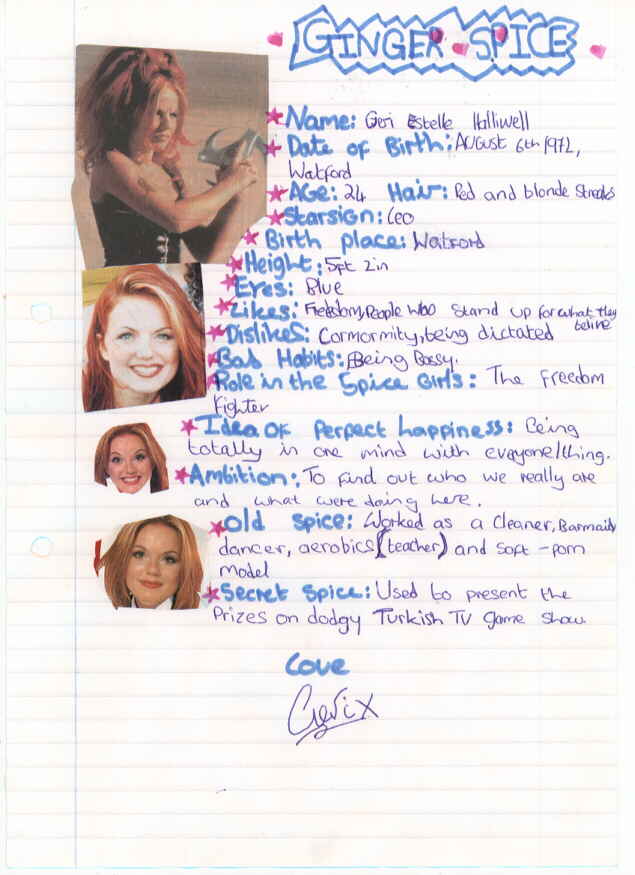 GINGER SPICE
Name: Geri Estelle Halliwell
Date of Birth: August 6th 1972,
Watford
Age: 24 Hair: Red and blonde Streaks
Starsign: Leo
Birth place: Watford
Height: 5ft 2in
Eyes: Blue
Likes: Freedom, People who stand up for what they
belive
Dislikes: Cormormity, being dictated
Bad Habits: Being Bossy.
Role in the Spice Girls: The Freedom
Fighter
Idea of perfect happiness: Being
totally in one mind with everyone/thing.
Ambition: To find out who we really are
and what were doing here.
Old spice: Worked as a cleaner, Barmaid,
dancer, aerobics (teacher) and soft-porn
model
Secret spice: Used to present the
Prizes on dodgy Turkish TV Game Show
Love
Geri x